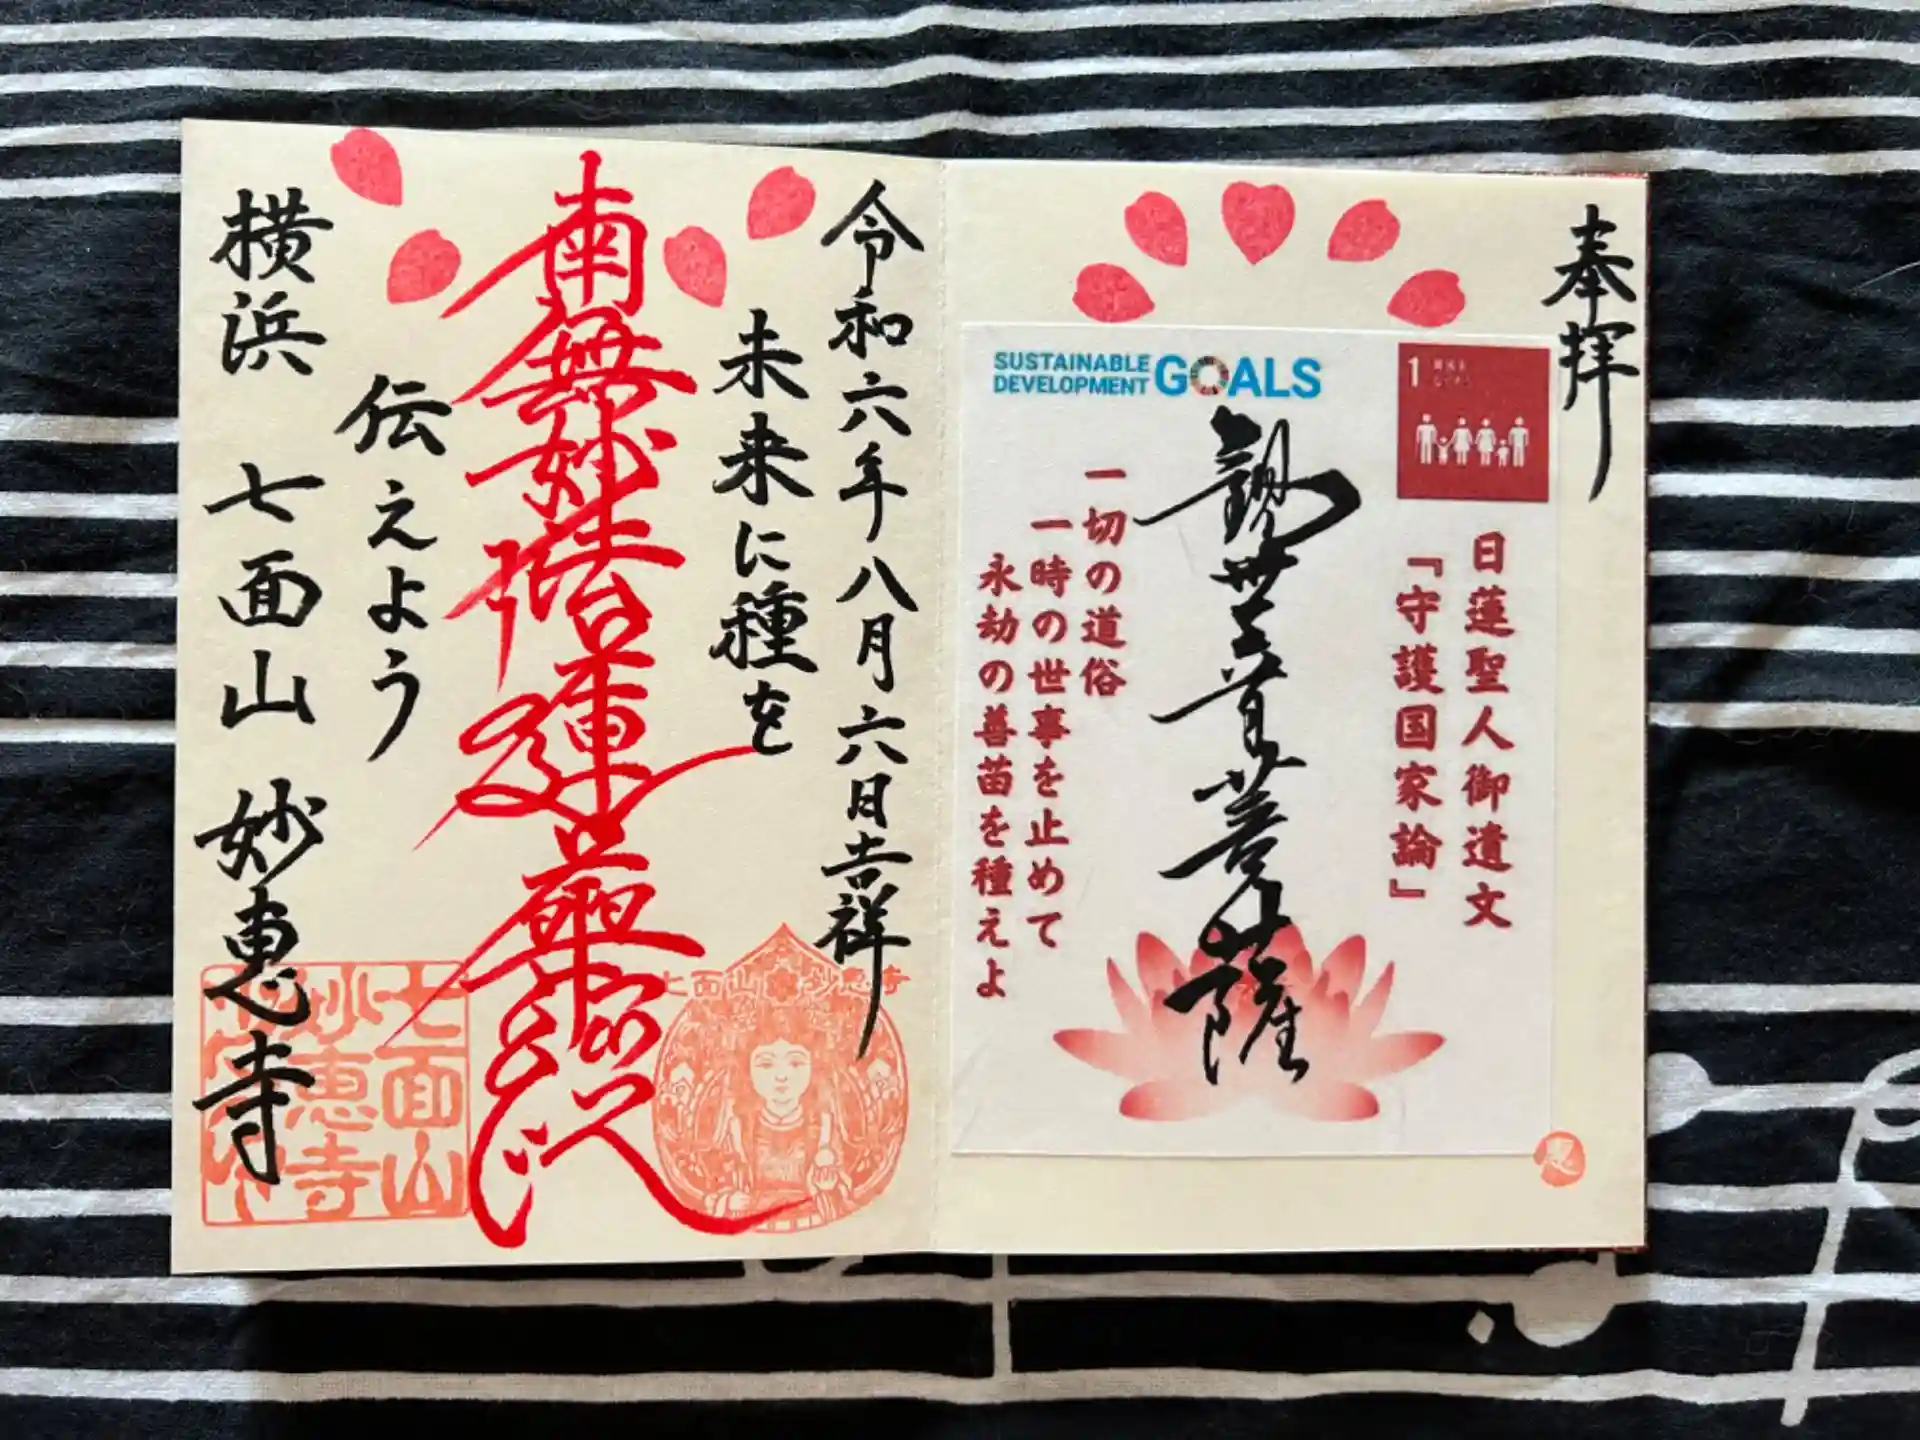 奉拝
SUSTAINABLE
DEVELOPMENT GOALS
1
日蓮聖人御遺文
『守護国家論』
観世音菩薩
一切の道俗
一時の世事を止めて
永劫の善苗を種えよ
令和六年八月六日吉祥
未来に種を
南無妙法蓮華経
伝えよう
横浜 七面山 妙恵寺
七面山 妙恵寺
七面山
妙恵寺